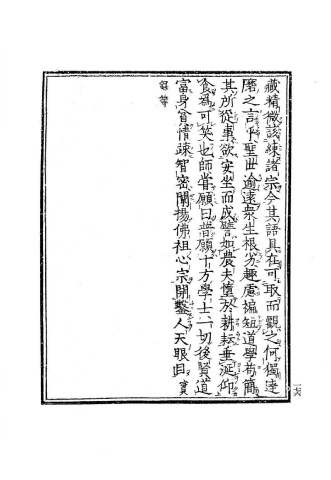 藏精微該練諸宗今其語具在可取而觀之何獨達
磨之言乎聖世逾遠衆生根劣趣慮褊短道學苟簡
其所從事欲安坐而成譬如農夫惰於耕耘垂涎仰
食為可笑也師嘗願曰普願十方學士一切後賢道
富身貧情疎智密闡揚佛祖心宗開鑿人天眼目實
録等